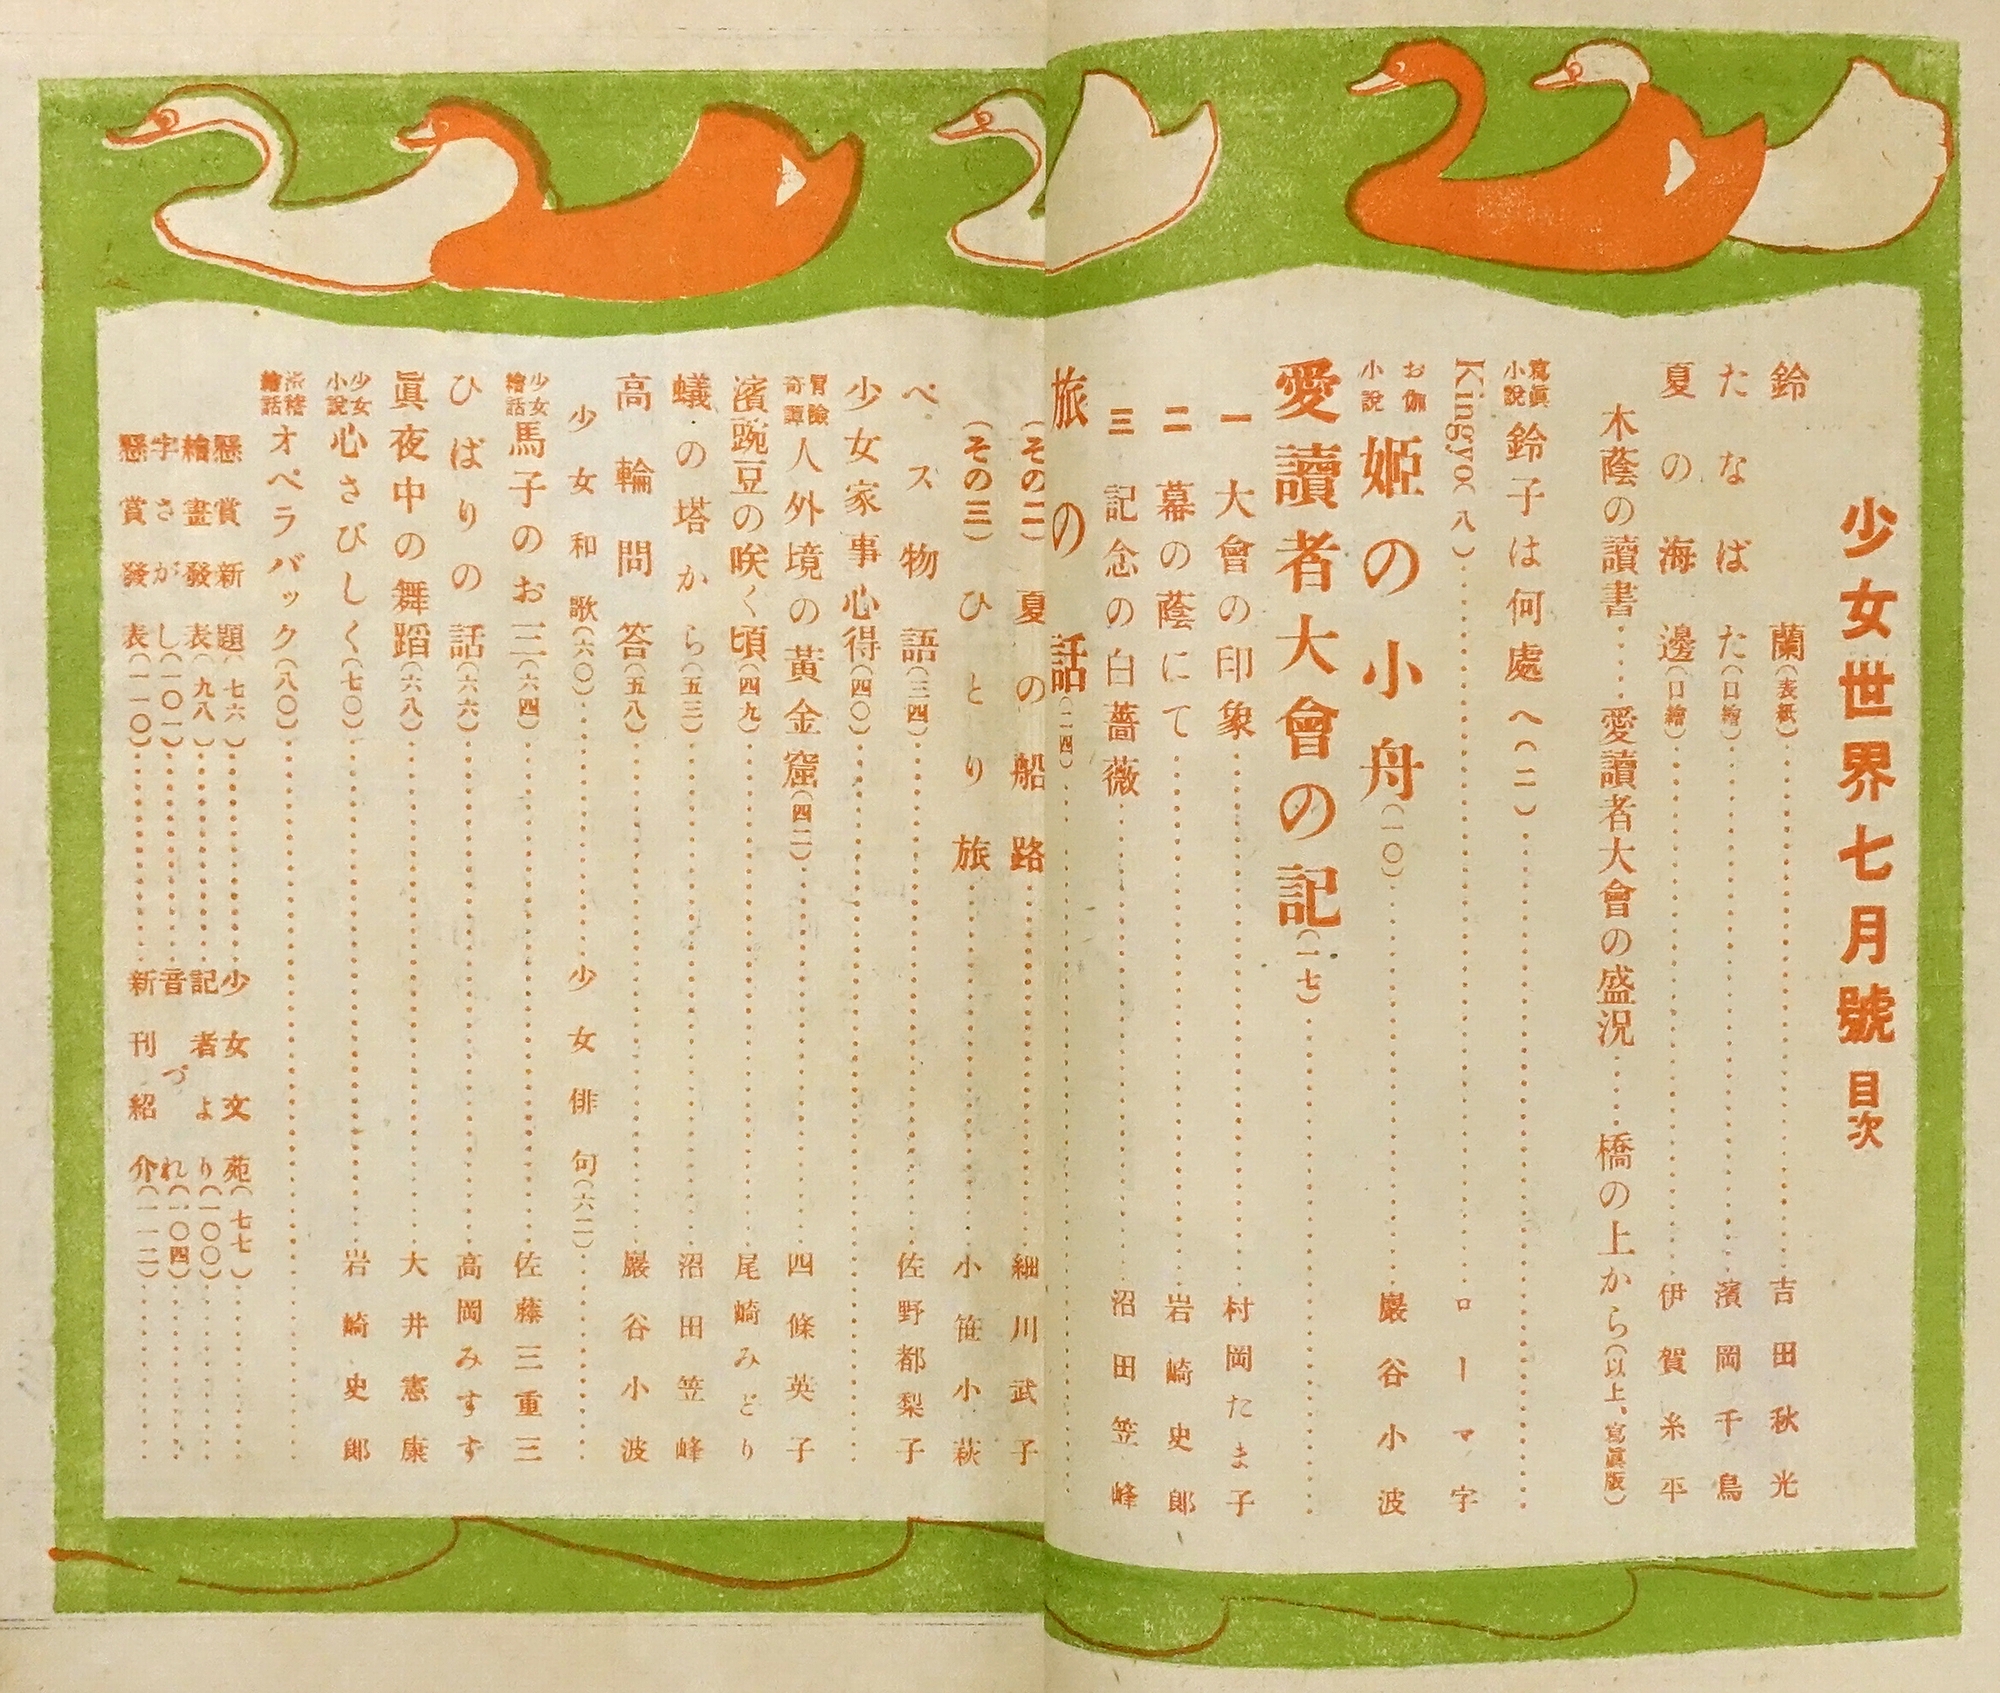 少女世界七月號 目次
鈴蘭(表紙)……吉田秋光
たなばた(口繪)……濱岡千鳥
夏の海邊(口繪)……伊賀糸平
木蔭の讀書……愛讀者大會の盛況……橋の上から(以上、寫眞版)
寫眞小說 鈴子は何處へ(二)……
Kingyo(八)……ローマ字
お伽小說 姬の小舟(一〇)……巖谷小波
愛讀者大會の記(一七)……
一 大會の印象……村岡たま子
二 幕の蔭にて……岩崎史郎
三 記念の白薔薇……沼田笠峰
旅の話(二四)……
(その二) 夏の船路……細川武子
(その三) ひとり旅……小笹小萩
ベス物語(三四)……佐野都梨子
少女家事心得(四〇)……
冒險奇譚 人外境の黃金窟(四二)……四條英子
濱豌豆の咲く頃(四九)……尾崎みどり
蟻の塔から(五三)……沼田笠峰
高輪問答(五八)……巖谷小波
少女和歌(六〇)……少女俳句(六二)……
少女繪話 馬子のお三(六四)……佐藤三重三
ひばりの話(六六)……高岡みすす
眞夜中の舞蹈(六八)……大井憲康
少女小說 心さびしく(七〇)……岩崎史郎
滑稽繪話 オペラバック(八〇)……
懸賞新題(七六)……少女文苑(七七)……
繪畫發表(九八)……記者より(一〇〇)……
字さがし(一〇一)……音づれ(一〇四)……
懸賞發表(一一〇)……新刊紹介(一一二)……